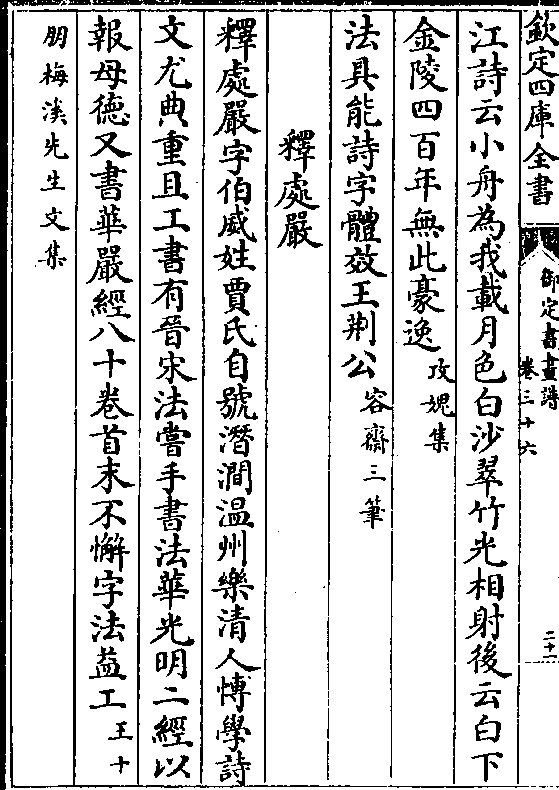 欽定四庫全書
御定書畫譜
卷三十六
二十一
江詩云小舟為我載月色白沙翠竹光相射後云白下
金陵四百年無此豪逸攻媿集
法具能詩字體效王荆公容齋三筆
釋處嚴
釋處嚴字伯威姓賈氏自號潛澗温州樂清人愽學詩
文尤典重且工書有晉宋法嘗手書法華光明二經以
報母德又書華嚴經八十卷首末不懈字法益工王十
朋梅溪先生文集